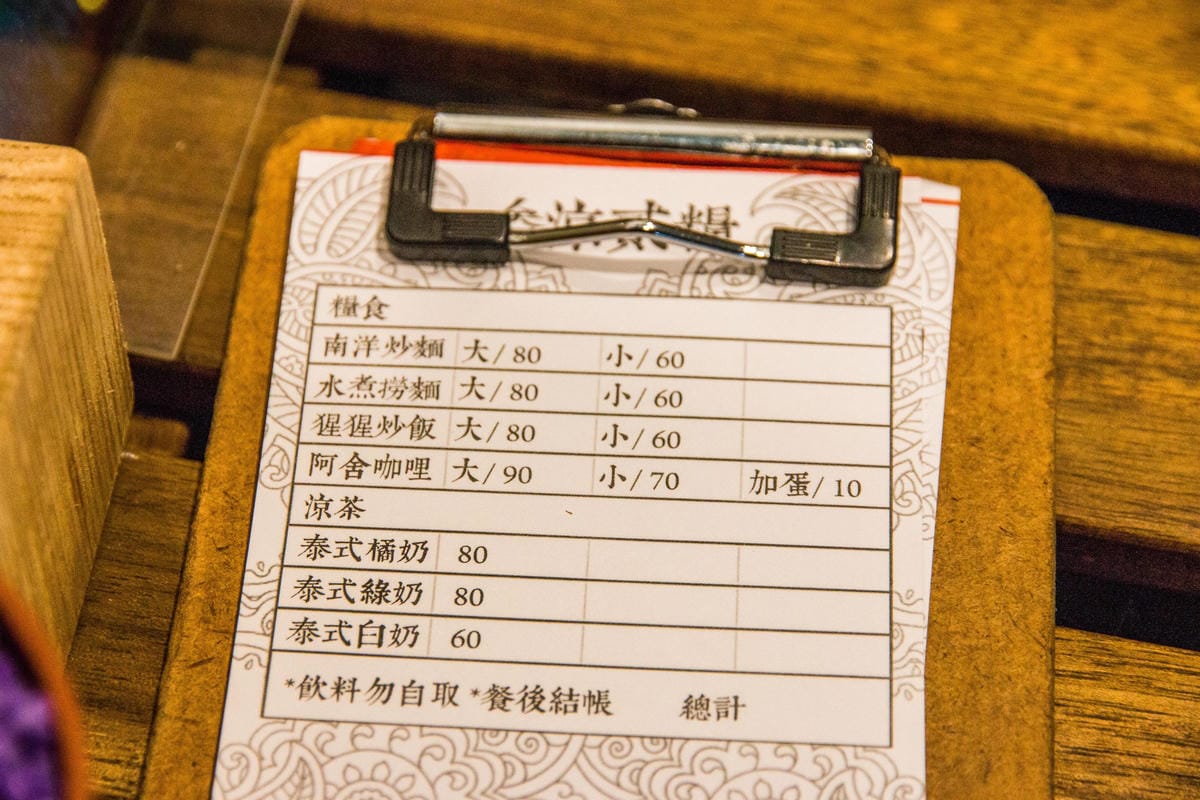 叁涼貳糧
糧食
南洋炒麵 大/80 小/60
水煮撈麵 大/80 小/60
猩猩炒飯 大/80 小/60
阿舍咖哩 大/90 小/70 加蛋/10
涼茶
泰式橘奶 80
泰式綠奶 80
泰式白奶 60
*飲料勿自取 *餐後結帳 總計